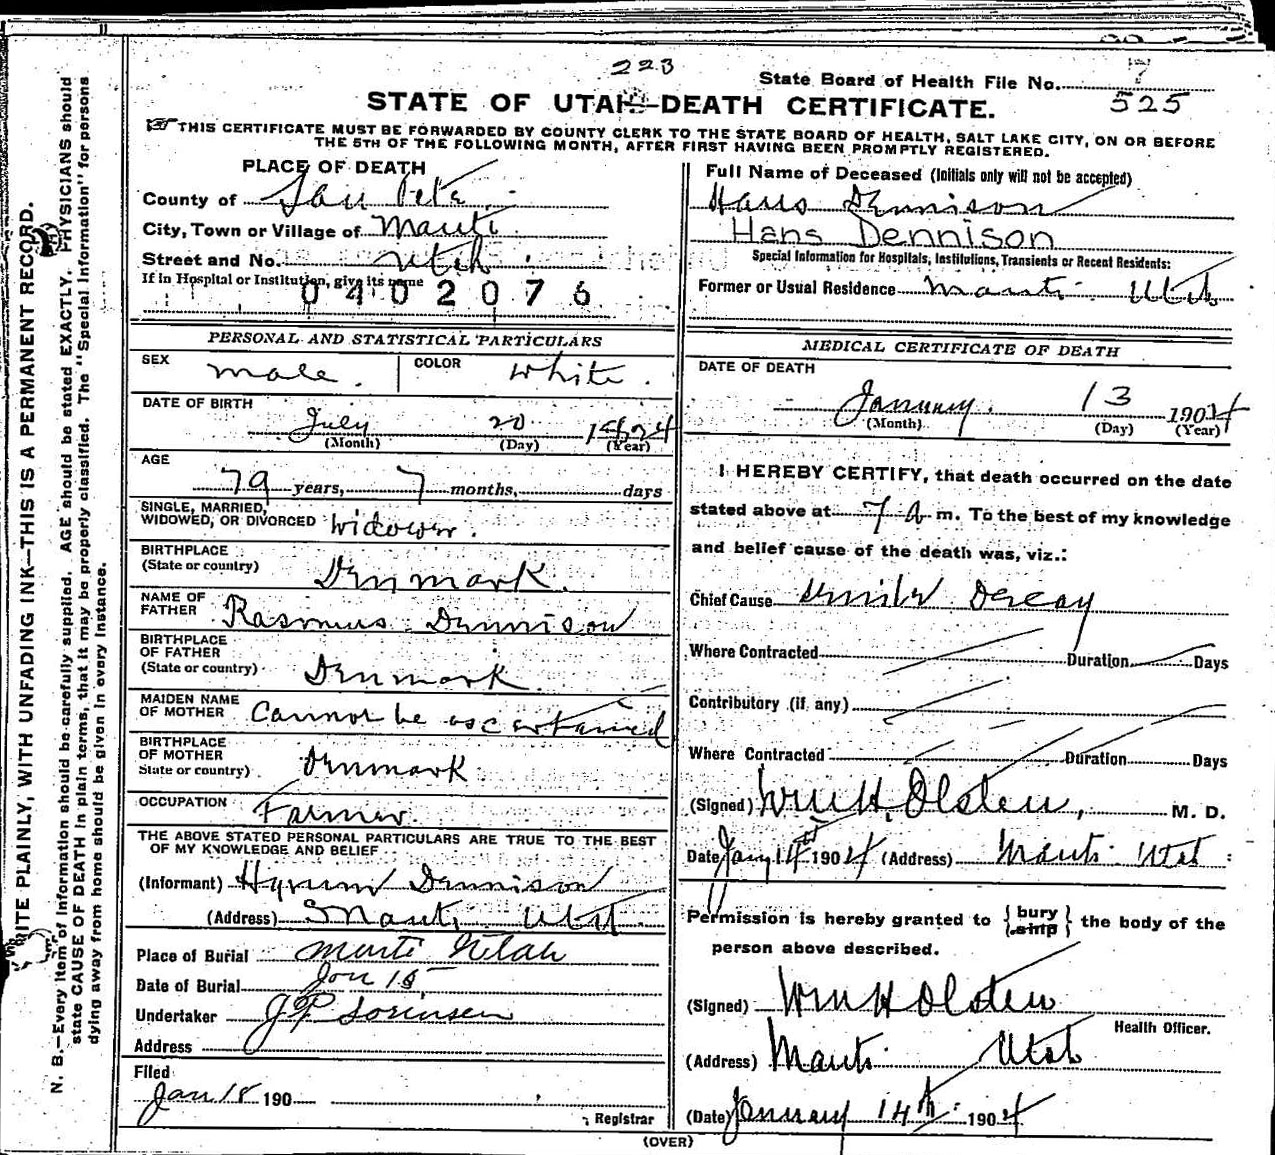 223
State Board of Health File No. 7
525
STATE OF UTAH—DEATH CERTIFICATE.
THIS CERTIFICATE MUST BE FORWARDED BY COUNTY CLERK TO THE STATE BOARD OF HEALTH, SALT LAKE CITY, ON OR BEFORE
THE 5TH OF THE FOLLOWING MONTH, AFTER FIRST HAVING BEEN PROMPTLY REGISTERED.
WRITE PLAINLY, WITH UNFADING INK—THIS IS A PERMANENT RECORD.
N. B.—Every item of information should be carefully supplied. AGE should be stated EXACTLY. PHYSICIANS should
state CAUSE OF DEATH in plain terms, that it may be properly classified. The "Special Information" for persons
dying away from home should be given in every instance.
PLACE OF DEATH
County of San Pete
City, Town or Village of Manti
Street and No. Utah
If in Hospital or Institution, give its name
0402076
Full Name of Deceased (Initials only will not be accepted)
Hans Dennison
Hans Dennison
Special Information for Hospitals, Institutions, Transients or Recent Residents:
Former or Usual Residence Manti Utah
PERSONAL AND STATISTICAL PARTICULARS
SEX male. COLOR white.
DATE OF BIRTH
July 20 1824
(Month) (Day) (Year)
AGE
79 years, 7 months, days
SINGLE, MARRIED,
WIDOWED, OR DIVORCED widower.
BIRTHPLACE
(State or country) Denmark.
NAME OF
FATHER Rasmus Dennison
BIRTHPLACE
OF FATHER
(State or country) Denmark
MAIDEN NAME
OF MOTHER Cannot be ascertained
BIRTHPLACE
OF MOTHER
State or country) Denmark
OCCUPATION Farmer.
THE ABOVE STATED PERSONAL PARTICULARS ARE TRUE TO THE BEST
OF MY KNOWLEDGE AND BELIEF
(Informant) Hyrum Dennison
(Address) Manti Utah.
Place of Burial Manti Utah
Date of Burial Jan 15
Undertaker J P Sorensen
Address
Filed
Jan 18 190
Registrar
MEDICAL CERTIFICATE OF DEATH
DATE OF DEATH
January 13 1904
(Month) (Day) (Year)
I HEREBY CERTIFY, that death occurred on the date
stated above at 7 a m. To the best of my knowledge
and belief cause of the death was, viz.:
Chief Cause Senile Decay
Where Contracted Duration Days
Contributory (if any)
Where Contracted Duration Days
(Signed) Wm H. Olsten, M. D.
Date Jany 14th 1904 (Address) Manti Utah
Permission is hereby granted to {bury ship} the body of the
person above described.
(Signed) Wm H Olsten
Health Officer.
(Address) Manti Utah
(Date) January 14th 1904
(OVER)